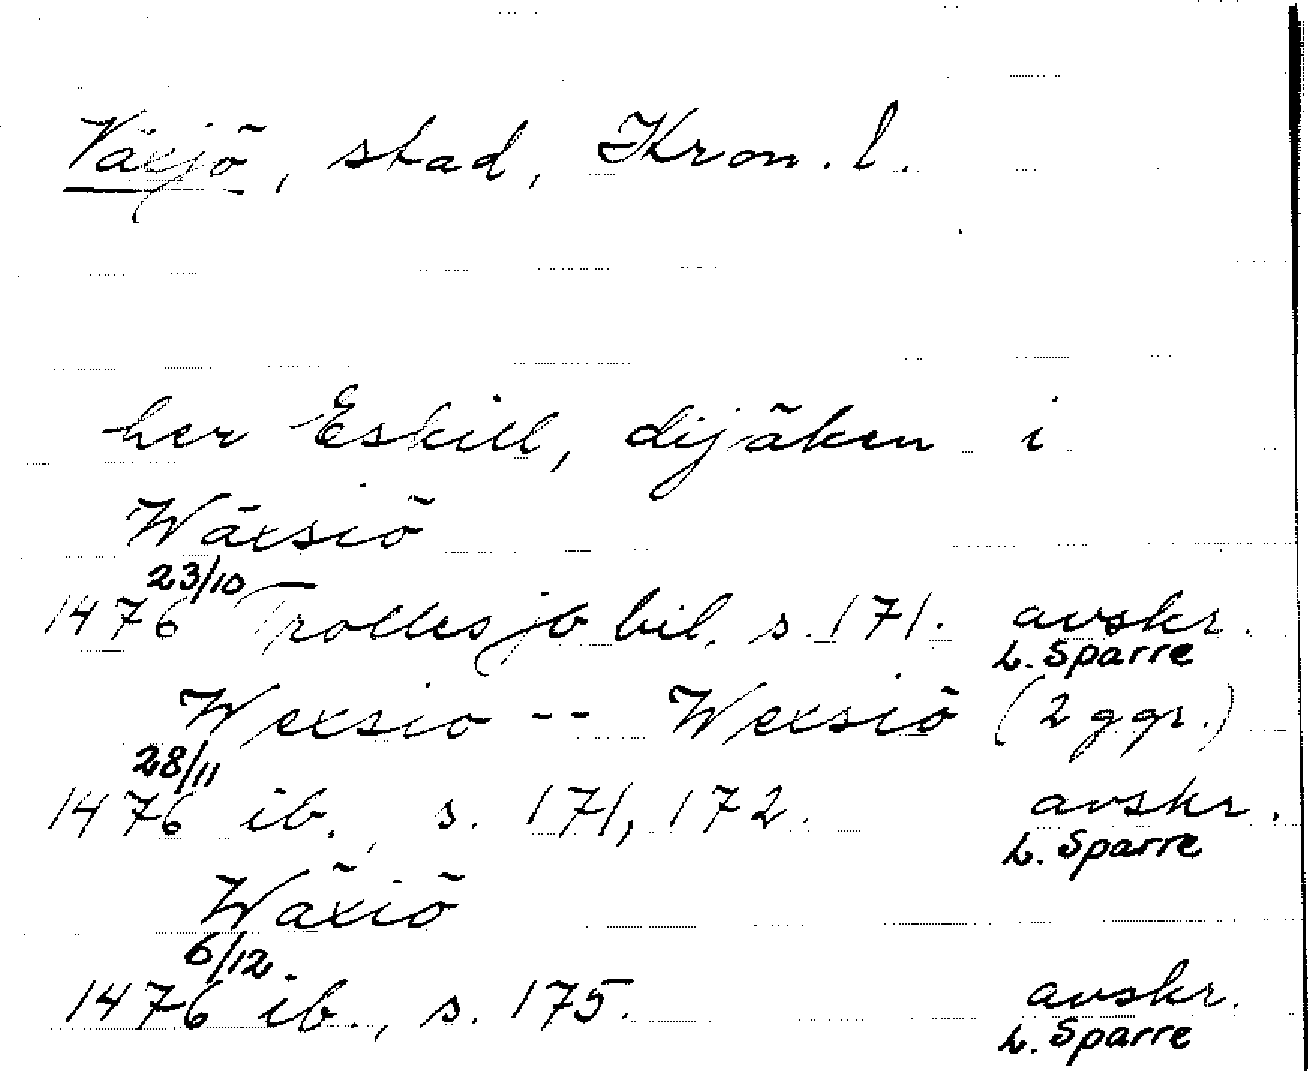 Växjö, stad, Kron. l.
her Eskill, dijäken i
Wäxsiö
23/10
1476 Trolles jb bil. s. 171. avskr.
L. Sparre
Wexsio -- Wexsiö (2 ggr.)
28/11
1476 ib., s. 171, 172. avskr.
L. Sparre
Wäxiö
6/12
1476 ib., s. 175. avskr.
L. Sparre